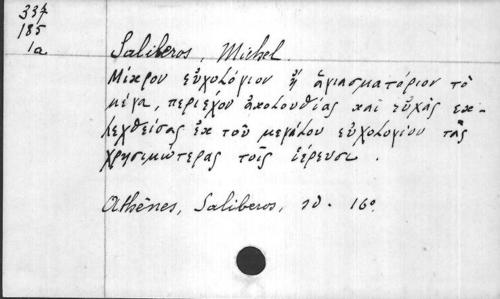 337
185
1a
Saliberos Michel.
Μίκρον εὐχολόγιον ἢ ἁγιασματάριον τὸ
μέγα, περιέχον ἀκολουθίας καὶ εὐχὰς ἐκ-
λεχθείσας ἐκ τοῦ μεγάλου εὐχολογίου τὰς
χρησιμωτέρας τοῖς ἱέρευσι.
Athènes, Saliberos, 16º